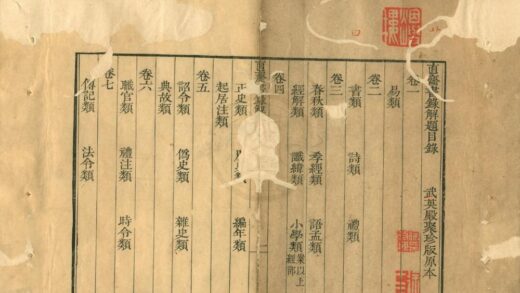 直齋書錄解題目錄　武英殿聚珍版原本
卷
易類
卷二
書類　詩類　禮類
卷三
春秋類　孝經類　語孟類
經解類　讖緯類　小學類 案以上經部
卷四
直齋書錄解
二
正史類　編年類
起居注類
卷五
詔令類　僞史類　雜史類
典故類
卷六
職官類　禮注類　時令類
卷七
傳記類　法令類